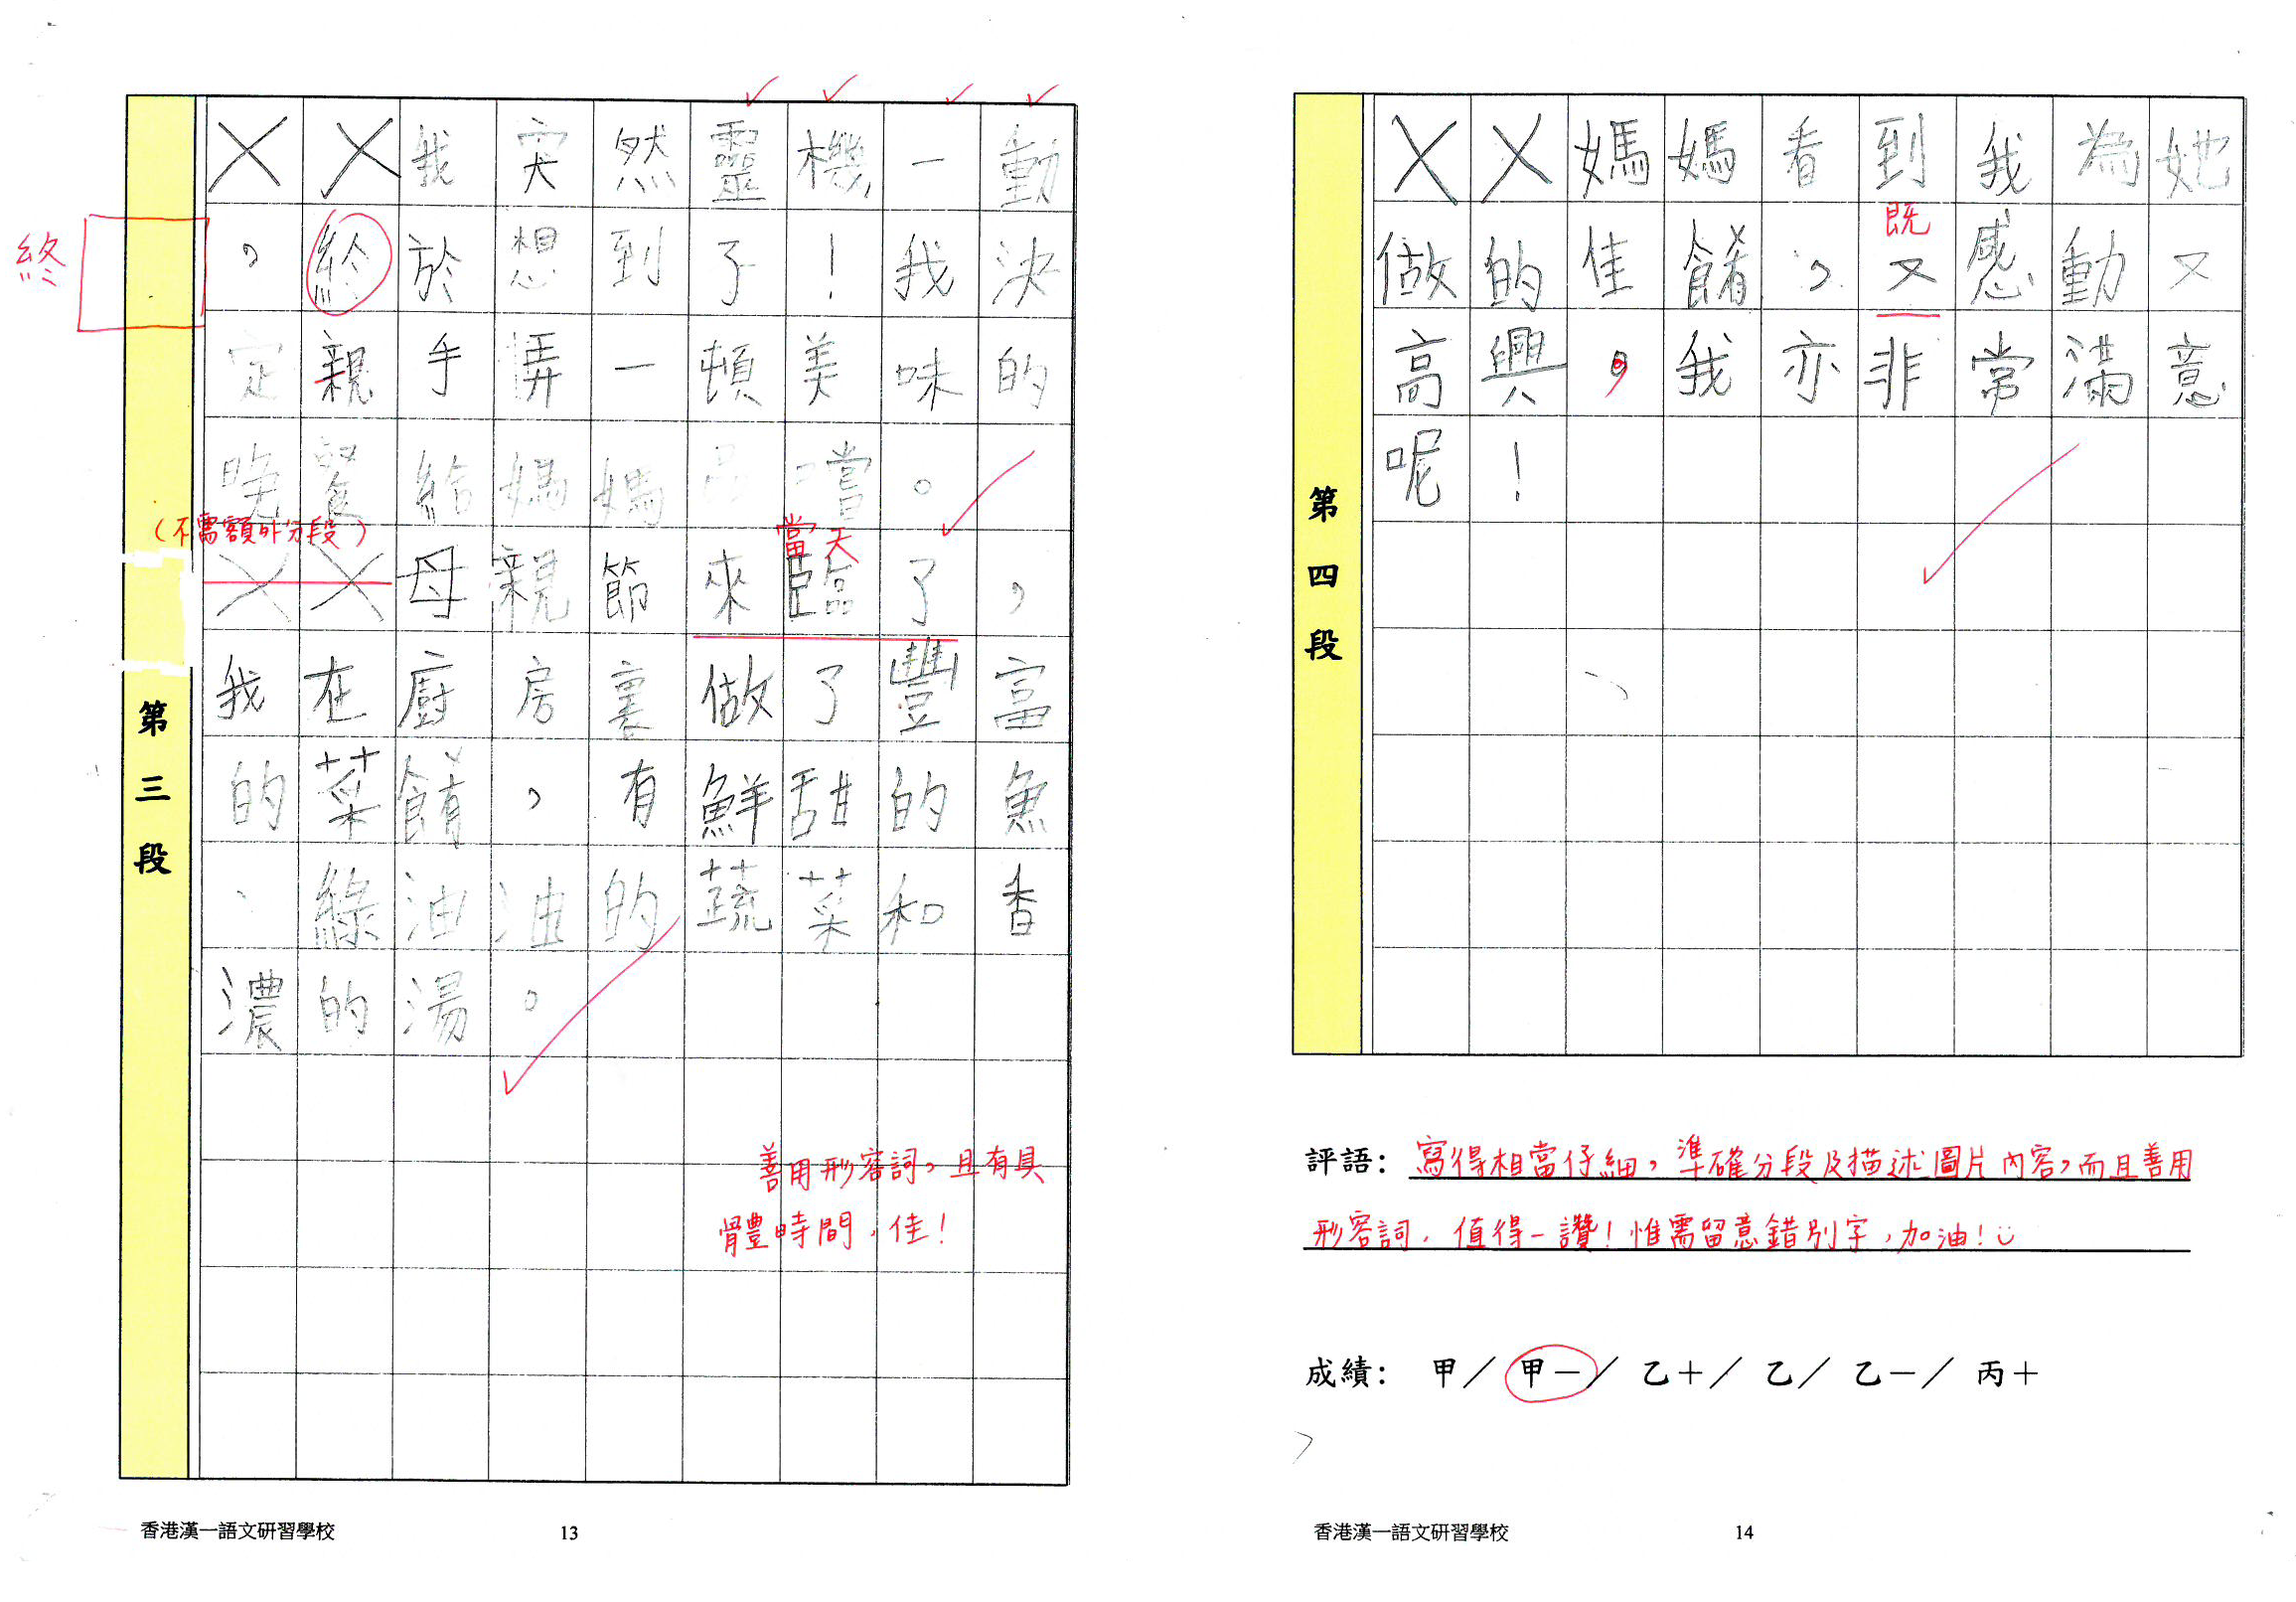 ××我突然靈機一動
終
，終於想到了！我決
定親手弄一頓美味的
晚餐給媽媽品嚐。
（不需額外分段）
當天
××母親節來臨了，
我在廚房裏做了豐富
的菜餚，有鮮甜的魚
、綠油油的蔬菜和香
濃的湯。
第三段
善用形容詞，且有具
體時間，佳！
香港漢一語文研習學校
13
××媽媽看到我為她
既
做的佳餚，又感動又
高興，我亦非常滿意
呢！
第四段
評語：寫得相當仔細，準確分段及描述圖片內容，而且善用
形容詞，值得一讚！惟需留意錯別字，加油！
成績： 甲／甲－／乙＋／乙／乙－／丙＋
香港漢一語文研習學校
14